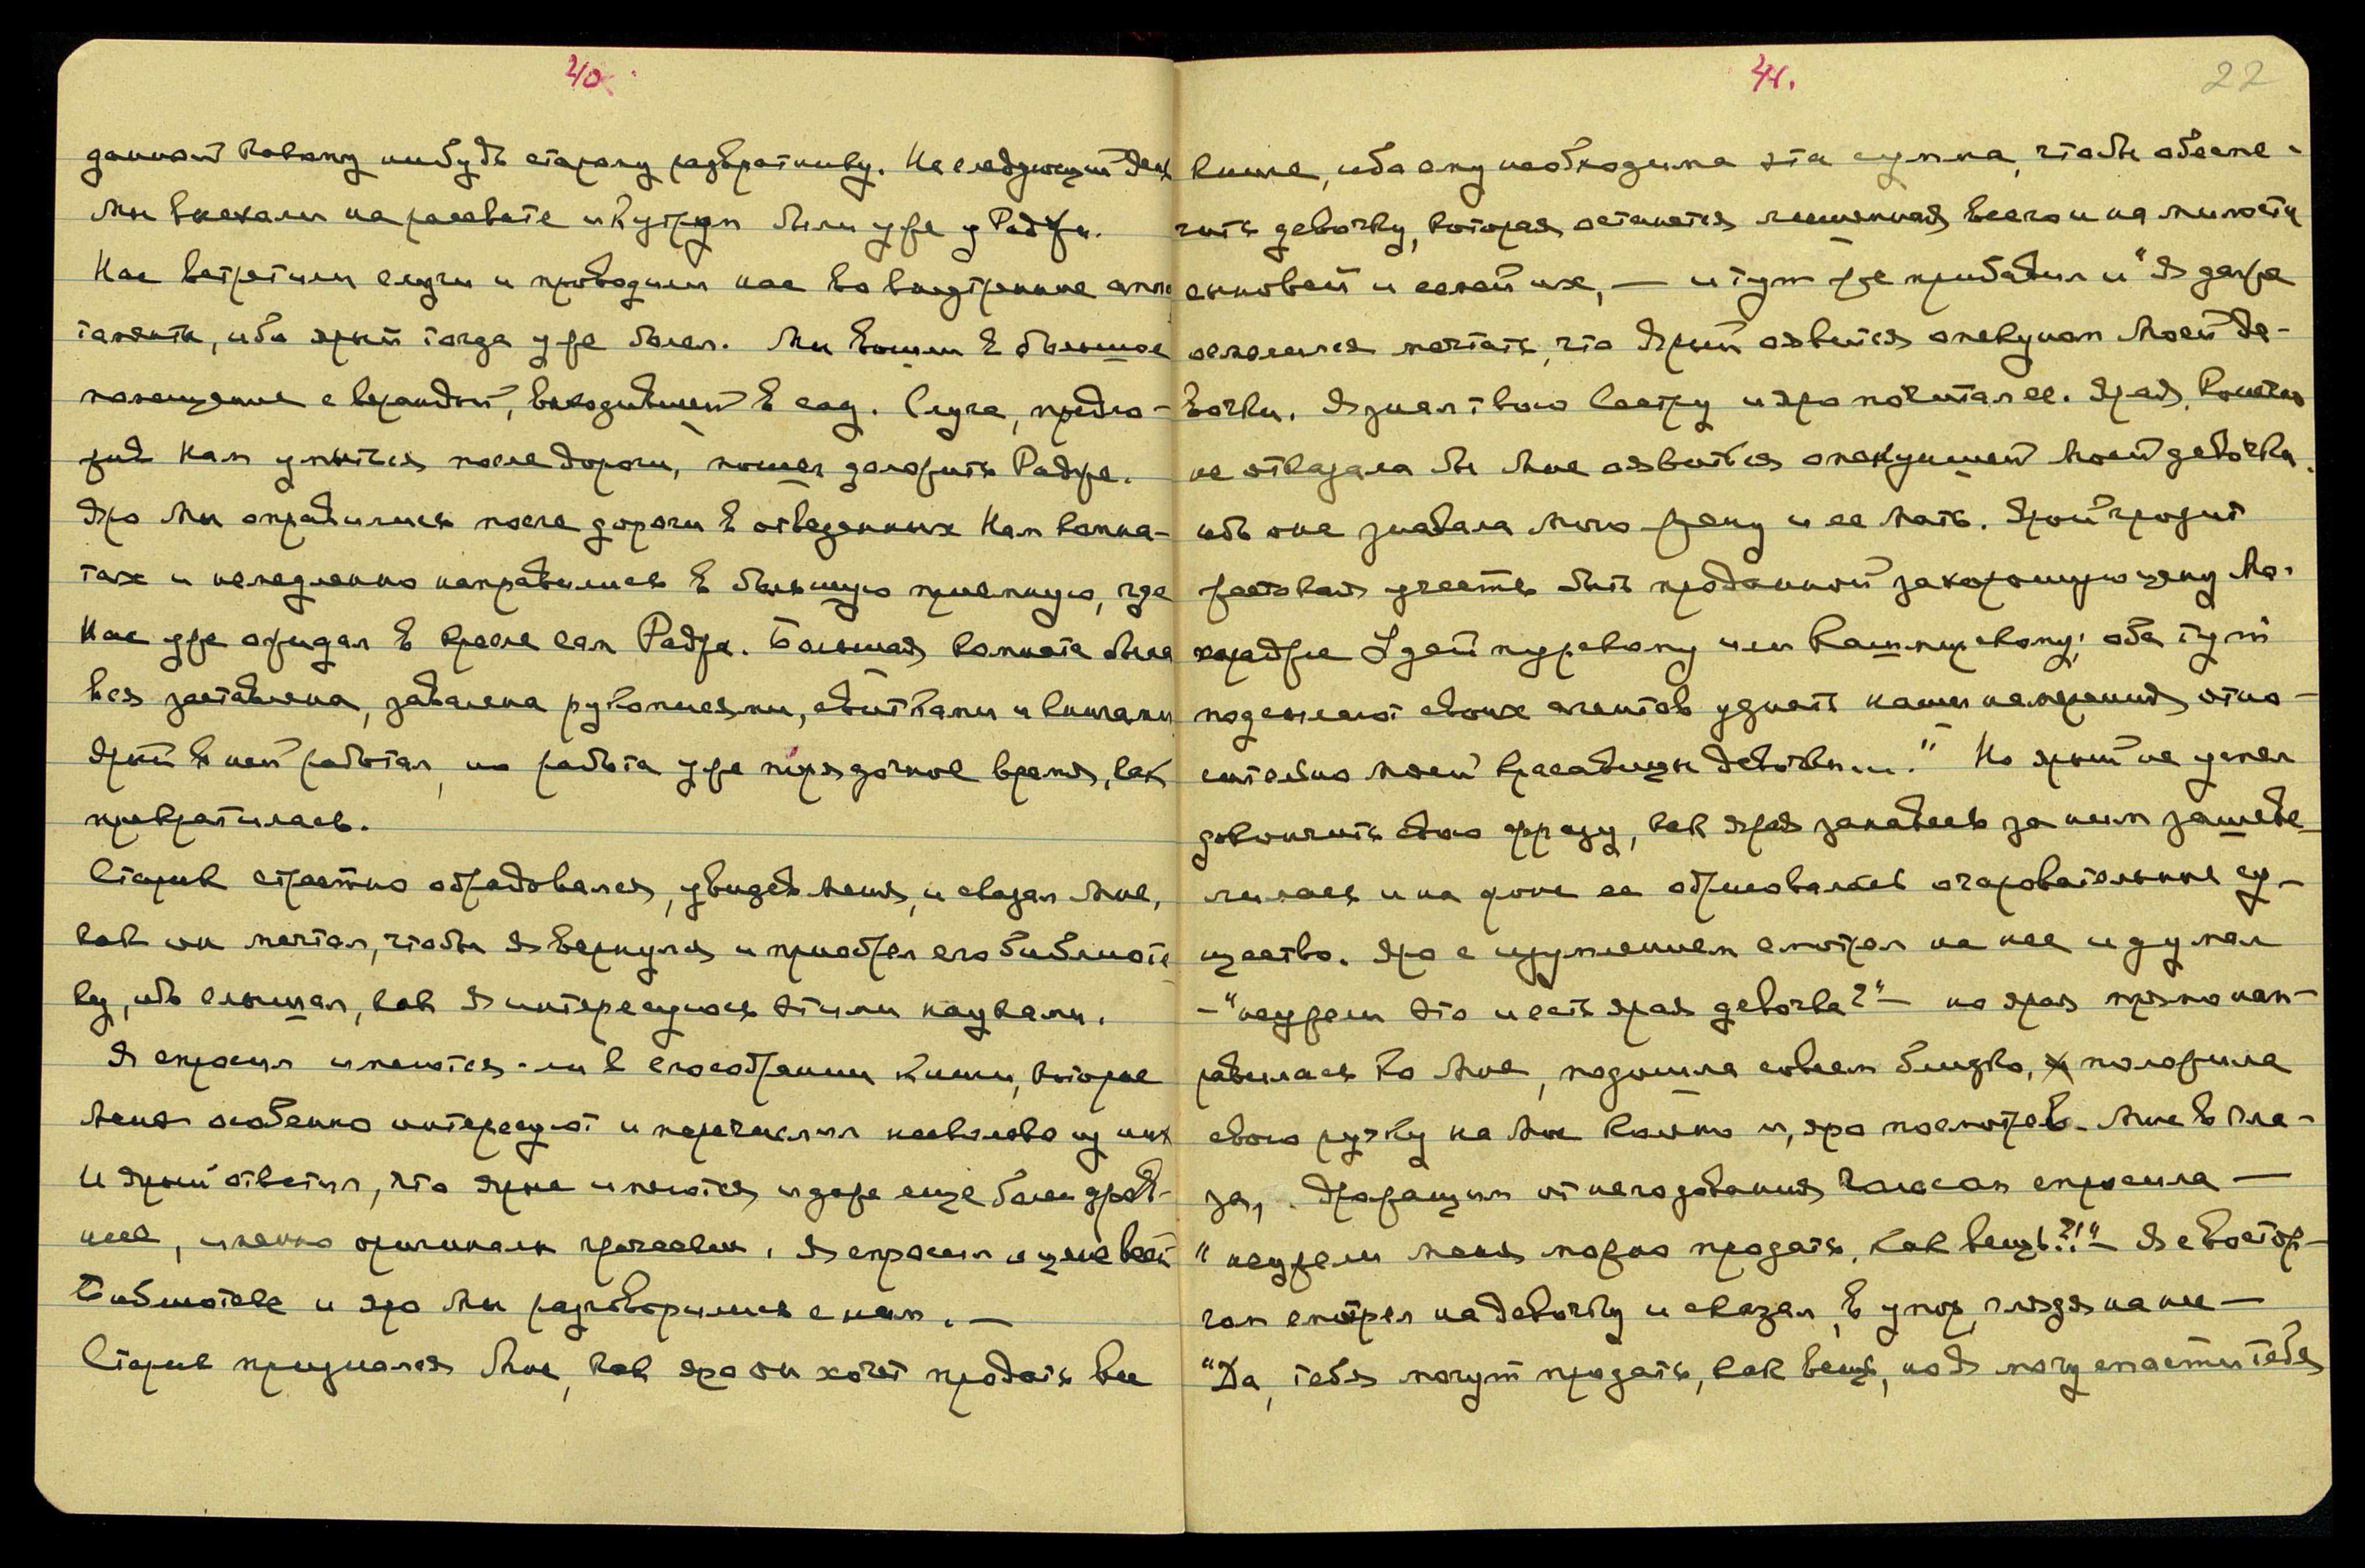 40.
данной какому нибудь старому развратнику. На следующий день
Мы выехали на рассвете и к утру были уже у Раджи.
Нас встретили слуги и проводили нас во внутренние аппа
таменты, ибо ярый тогда уже болел. Мы вошли в большое
помещение с верандой, выходившей в сад. Слуга, предло-
жив нам умыться после дороги, пошел доложить Радже.
Яро Мы оправились после дороги в отведенных Нам комна-
тах и немедленно направились в большую приемную, где
Нас уже ожидал в кресле сам Раджа. Большая комната была
вся заставлена, завалена рукописями, свитками и книгами
Ярый в ней работал, но работа уже порядочное время, как
прекратилась.
Старик страстно обрадовался, увидев Меня, и сказал Мне,
как он мечтал, чтобы Я вернулся и приобрел его библиоте
ку, ибо слышал, как Я интересуюсь этими науками.
Я спросил имеются-ли в его собрании Книги, которые
Меня особенно интересуют и перечислил несколько из них
И ярый ответил, что ярые имеются и даже еще более древ-
ние, именно оригиналы греческие. Я спросил о цене всей
Библиотеке и яро Мы разговорились с ним. —
Старик признался Мне, как яро он хочет продать все
41.
22
книги, ибо ему необходима эта сумма, чтобы обеспе-
чить девочку, которая останется лишенная всего и на милости
сыновей и семей их, — и тут же прибавил и "Я даже
осмелился мечтать, что Ярый явится опекуном Моей де-
вочки. Я знал твою Сестру и яро почитал ее. Ярая, Конечно
не отказала бы Мне явиться опекуншей Моей девочки.
ибо она знавала Мою жену и ее Мать. Ярой грозит
жестокая участь быть проданной за хорошую цену Ма-
хараджи Удайпурскому или Кашмирскому; оба тут
подсылают своих агентов узнать наши намерения отно-
сительно моей красавицы девочки..." Но ярый не успел
докончить свою фразу, как ярая занавесь за ним зашеве-
лилась и на фоне ее обрисовалось очаровательное су-
щество. Яро с изумлением смотрел на нее и думал
— "неужели это и есть ярая девочка?" — но ярая прямо нап-
равилась ко Мне, подошла совсем близко, положила
свою ручку на Мое Колено и, яро посмотрев Мне в гла-
за, дрожащим от негодования голосом спросила —
"неужели меня можно продать, как вещь?!" — Я с востор-
гом смотрел на девочку и сказал, в упор глядя на нее —
"Да, тебя могут продать, как вещь, но Я могу спасти тебя